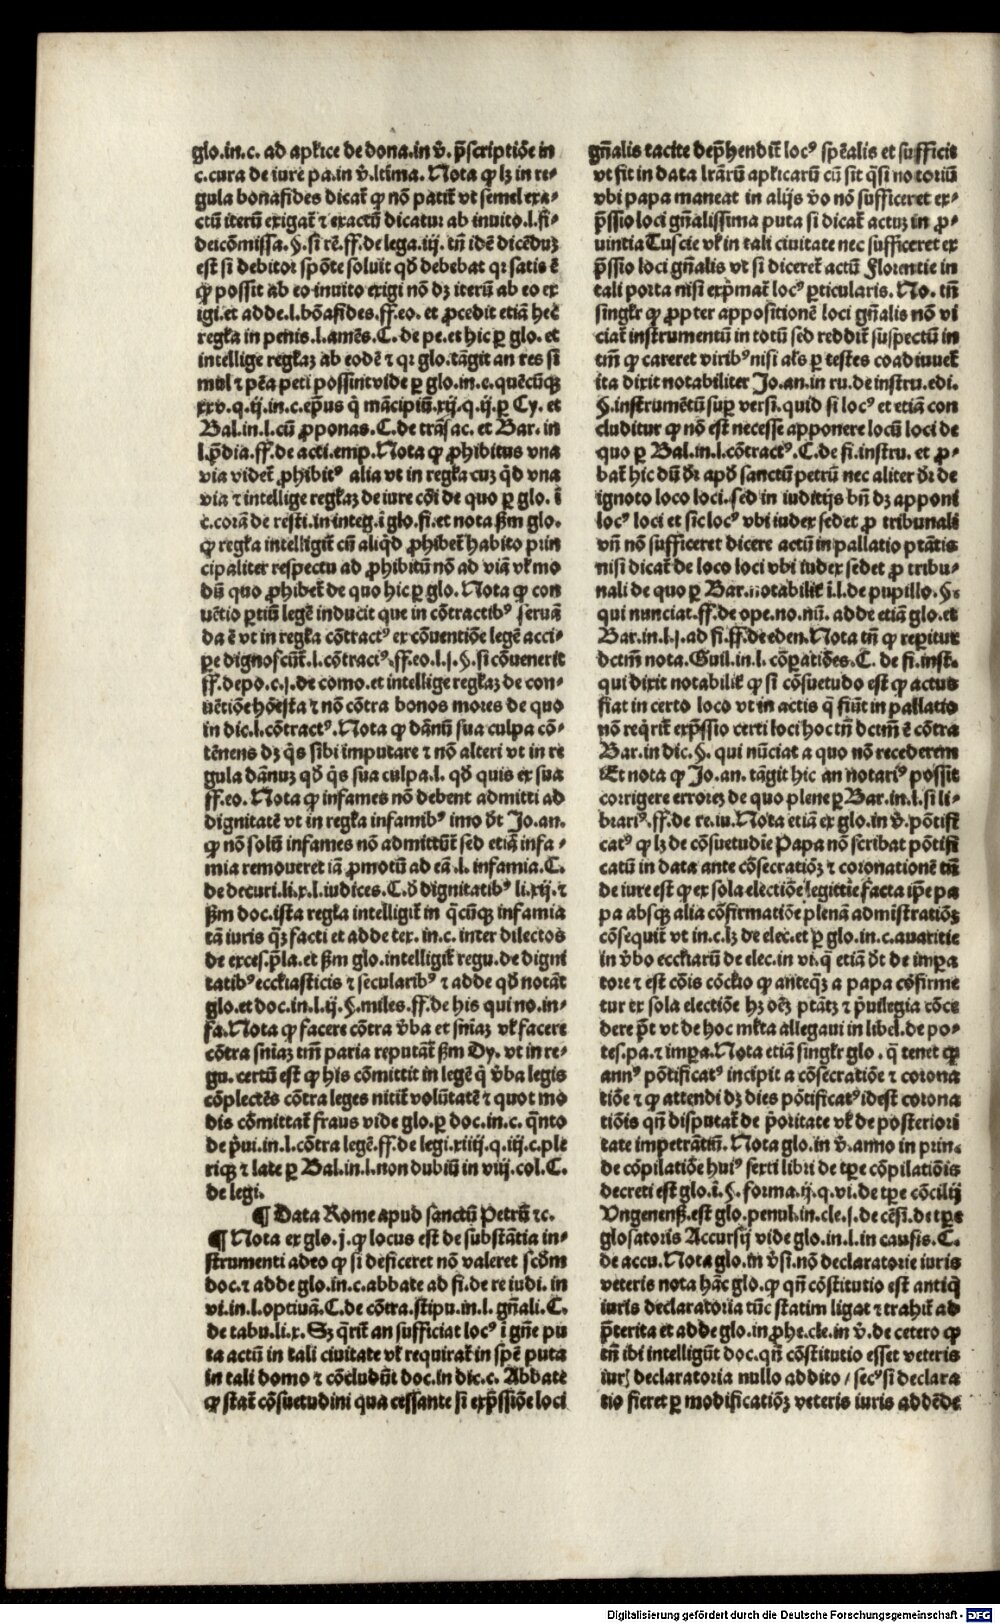 glo.in.c. ad aplice de dona.in v̄. p̄scriptiōe in
c.cura de iure pa.in v̄.ltima. Nota ꝙ lꝫ in re-
gula bonafides dicat̄ ꝙ nō patit̄ vt semel exa-
ctū iterū exigat̄ ⁊ exactū dicatur ab inuito.l.fi-
deicōmissa.§.si rē.ff.de lega.iij. tn̄ idē dicēduꝫ
est si debitor spōte soluit qd̄ debebat qꝛ satis ē
ꝙ possit ab eo inuito exigi nō dꝫ iterū ab eo ex
igi.et adde.l.bōafides.ff.eo. et ꝓcedit etiā hec
regła in penis.l.amēs.C. de pe.et hic ꝑ glo. et
intellige regłaꝫ ab eodē ⁊ qꝛ glo.tāgit an res si
mul ⁊ pēa peti possint vide ꝑ glo.in.c.quēcūqꝫ
xxv.q.ij.in.c.ep̄us q̄ mācipiū.xij.q.ij.ꝑ Cy. et
Bal.in.l.cū ꝓponas.C.de trāsac. et Bar. in
l.p̄dia.ff.de acti.emp. Nota ꝙ ꝓhibitus vna
via videt̄ ꝓhibitꝰ alia vt in regła cuꝫ qd̄ vna
via ⁊ intellige regłaꝫ de iure cōi de quo ꝑ glo. ī
c.corā de resti.in integ.ī glo.fi.et nota ẜm glo.
ꝙ regła intelligit̄ cū aliqd̄ ꝓhibet̄ habito prin
cipaliter respectu ad ꝓhibitū nō ad viā vł mo
dū quo ꝓhibet̄ de quo hic ꝑ glo. Nota ꝙ con
uētio ꝑtiū legē inducit que in cōtractibꝰ seruā
da ē vt in regła cōtractꝰ ex cōuentiōe legē acci-
pe dignoscūt̄.l.cōtractꝰ.ff.eo.l.j.§.si cōuenerit
ff.depo.c.j.de como.et intellige regłaꝫ de con-
uētiōe hōesta ⁊ nō cōtra bonos mores de quo
in dic.l.cōtractꝰ. Nota ꝙ dānū sua culpa cō-
tēnens dꝫ q̄s sibi imputare ⁊ nō alteri vt in re
gula dānuꝫ qd̄ q̄s sua culpa.l. qd̄ quis ex sua
ff.eo. Nota ꝙ infames nō debent admitti ad
dignitatē vt in regła infamibꝰ imo d̄t Jo.an.
ꝙ nō solū infames nō admittūt̄ sed etiā infa-
mia remoueret iā ꝓmotū ad eā .l. infamia.C.
de decuri.li.x.l.iudices.C.d̄ dignitatibꝰ li.xij.⁊
ẜm doc.ista regła intelligit̄ in q̄cūqꝫ infamia
tā iuris q̄ꝫ facti et adde tex. in.c. inter dilectos
de exces.p̄la.et ẜm glo.intelligit̄ regu.de digni
tatibꝰ eccłiasticis ⁊ secularibꝰ ⁊ adde qd̄ notāt
glo.et doc.in.l.ij.§.miles.ff.de his qui no.in-
fa. Nota ꝙ facere cōtra v̄ba et sn̄iaꝫ vł facere
cōtra sn̄iaꝫ tm̄ paria reputāt̄ ẜm Dy. vt in re-
gu. certū est ꝙ his cōmittit in legē q̄ v̄ba legis
cōplectēs cōtra leges nitit̄ volūtatē ⁊ quot mo
dis cōmittat̄ fraus vide glo.ꝑ doc.in.c. q̄nto
de p̄ui.in.l.cōtra legē.ff.de legi.xiiij.q.iij.c.ple
riqꝫ ⁊ late ꝑ Bal.in.l.non dubiū in viij.col.C.
de legi.
¶ Data Rome apud sanctū Petrū ⁊c.
¶ Nota ex glo.j.ꝙ locus est de substātia in-
strumenti adeo ꝙ si deficeret nō valeret scd̄m
doc.⁊ adde glo.in.c.abbate ad fi.de re iudi. in
vi.in.l.optimā.C.de cōtra.stipu.in.l. gn̄ali.C.
de tabu.li.x. Sꝫ q̄rit̄ an sufficiat locꝰ ī gn̄e pu
ta actū in tali ciuitate vł requirat̄ in spē puta
in tali domo ⁊ cōcludūt doc.in dic.c. Abbate
ꝙ stat̄ cōsuetudini qua cessante si exp̄ssiōe loci
gn̄alis tacite dep̄hendit̄ locꝰ sp̄ealis et sufficit
vt fit in data lr̄arū aplicarū cū sit q̄si notoriū
vbi papa maneat in alijs v̄o nō sufficeret ex-
p̄ssio loci gn̄alissima puta si dicat̄ actuꝫ in ꝓ-
uintia Tuscie vł in tali ciuitate nec sufficeret ex
p̄ssio loci gn̄alis vt si diceret̄ actū Florentie in
tali porta nisi exp̄mat̄ locꝰ ꝑticularis. No. tn̄
singłr ꝙ ꝓpter appositionē loci gn̄alis nō vi
ciat̄ instrumentū in totū sed reddit̄ suspectū in
tm̄ ꝙ careret viribꝰ nisi als ꝑ testes coadiuuet̄
ita dixit notabiliter Jo.an.in ru.de instru.edi.
§.instrumētū suꝑ versi.quid si locꝰ et etiā con
cluditur ꝙ nō est necesse apponere locū loci de
quo ꝑ Bal.in.l.cōtractꝰ.C.de fi.instru. et ꝓ-
bat̄ hic dū dr̄ apd̄ sanctū petrū nec aliter dr̄ de
ignoto loco loci.sed in iuditijs bn̄ dꝫ apponi
locꝰ loci et sic locꝰ vbi iudex sedet ꝓ tribunali
vn̄ nō sufficeret dicere actū in pallatio ptātis
nisi dicat̄ de loco loci vbi iudex sedet ꝓ tribu-
nali de quo ꝑ Bar.notabilit̄ ī.l.de pupillo.§.
qui nunciat.ff.de ope.no.nū. adde etiā glo.et
Bar.in.l.j.ad fi.ff.de eden. Nota tn̄ ꝙ reꝑitur
dctm̄ nota.Guil.in.l. cōꝑatiōes.C. de fi.inst.
qui dixit notabilit̄ ꝙ si cōsuetudo est ꝙ actus
fiat in certo loco vt in actis q̄ fiūt in pallatio
nō reqrit̄ exp̄ssio certi loci hoc tn̄ dctm̄ ē cōtra
Bar.in dic.§. qui nūciat a quo nō recederem
Et nota ꝙ Jo.an. tāgit hic an notariꝰ possit
corrigere erroreꝫ de quo plene ꝑ Bar.in.l.si li-
brariꝰ.ff.de re.iu. Nota etiā ex glo.in v̄.pōtifi
catꝰ ꝙ lꝫ de cōsuetudīe Papa nō scribat pōtifi
catū in data ante cōsecratiōꝫ ⁊ coronationē tn̄
de iure est ꝙ ex sola electiōe legittīe facta ip̄e pa
pa absqꝫ alia cōfirmatiōe plenā admistratiōꝫ
cōsequit̄ vt in.c.lꝫ de elec.et ꝑ glo.in.c.auaritie
in v̄bo eccłiarū de elec.in vi.q̄ etiā d̄t de impa
tore ⁊ est cōis cōcłio ꝙ anteqꝫ a papa cōfirme
tur ex sola electiōe hꝫ oēꝫ ptātꝫ ⁊ p̄uilegia cōce
dere p̄t vt de hoc młta allegaui in libel.de po-
tes.pa.⁊ impa. Nota etiā singłr glo. q̄ tenet ꝙ
annꝰ pōtificatꝰ incipit a cōsecratiōe ⁊ corona
tiōe ⁊ ꝙ attendi dꝫ dies pōtificatꝰ idest corona
tiōis qn̄ disputat̄ de p̄oritate vł de posteriori
tate impetrātiū. Nota glo.in v̄.anno in prin.
de cōpilatiōe huiꝰ sexti libri de tꝑe cōpilatiōis
decreti est glo.ī.§. forma.ij.q.vi.de tꝑe cōcilij
Vngenenẜ.est glo.penul.in.cle.j.de cēsi.de tꝑe
glosatoris Accursij vide glo.in.l.in causis.C.
de accu. Nota glo.in v̄si.nō declaratorie iuris
veteris nota hāc glo.ꝙ qn̄ cōstitutio est antiq̄
iuris declaratoria tūc statim ligat ⁊ trahit̄ ad
p̄terita et adde glo.in ꝓhe.cle.in v̄.de cetero ꝙ
tn̄ ibi intelligūt doc.qn̄ cōstitutio esset veteris
iurꝭ declaratoria nullo addito / secꝰ si declara
tio fieret ꝑ modificatiōꝫ veteris iuris addēde
Digitalisierung gefördert durch die Deutsche Forschungsgemeinschaft - DFG